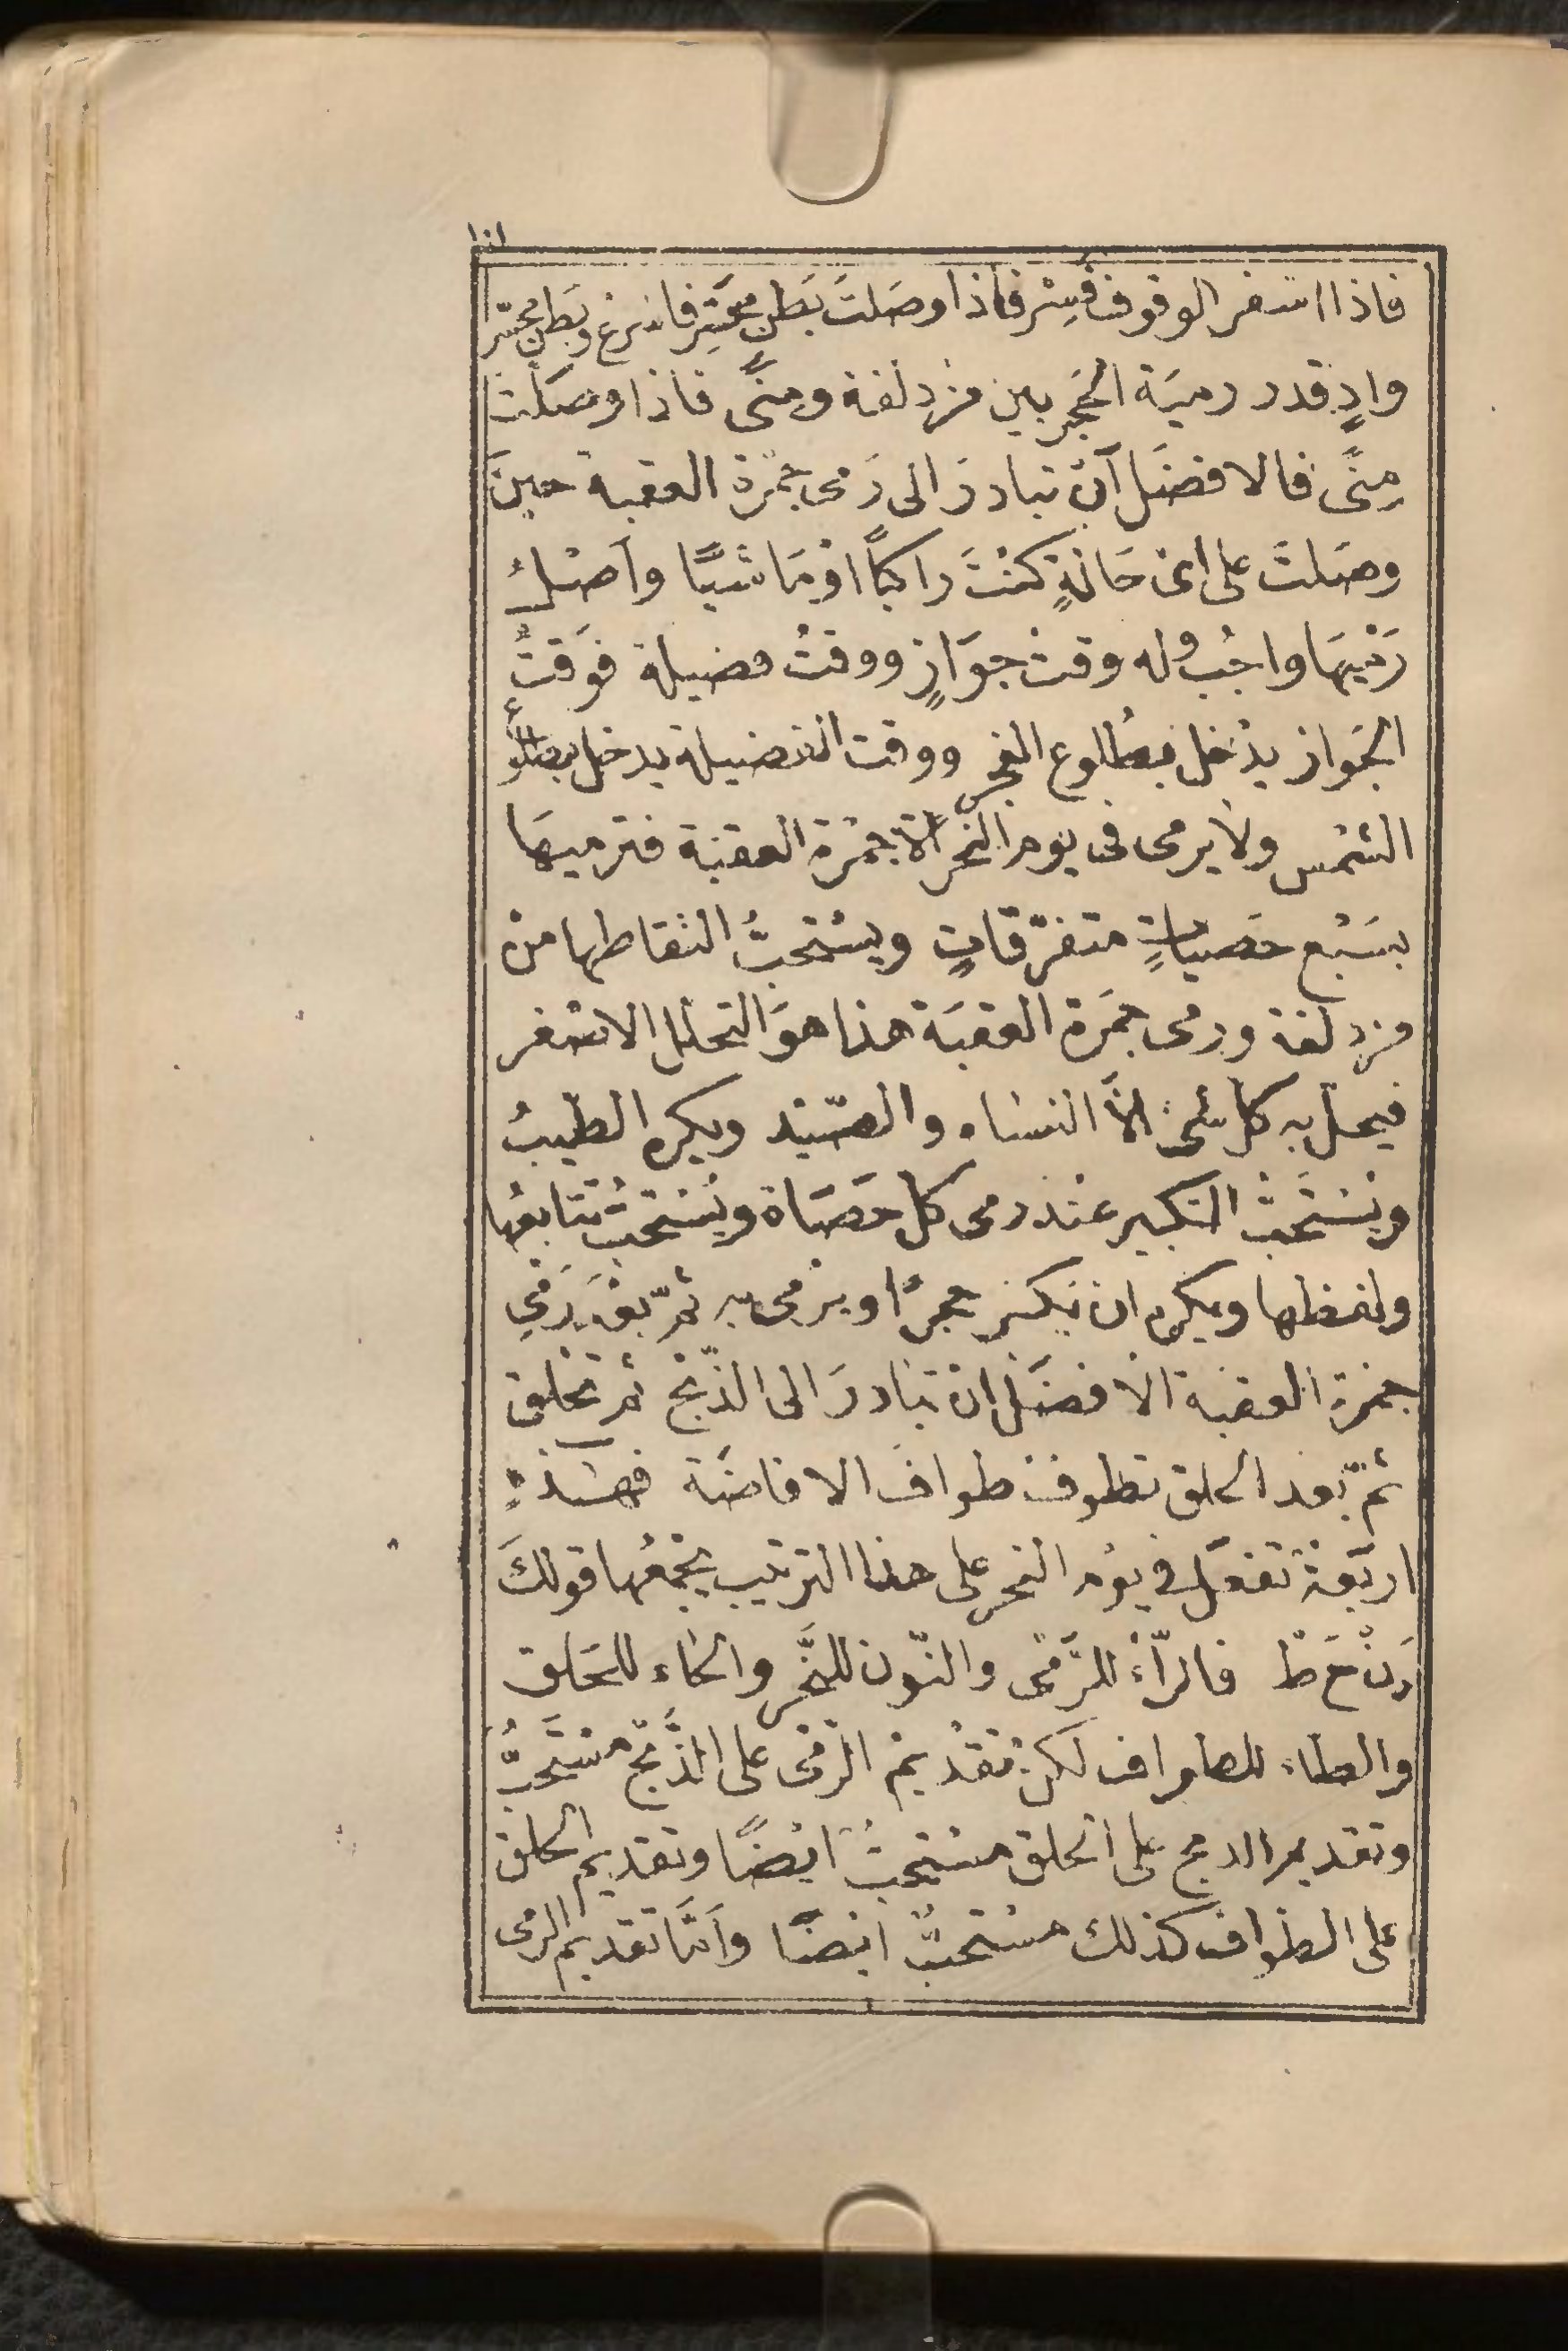 ١٠١
فاذا اسفر الوقوف فسِرْ فاذا وصَلتَ بَطن محَسّرِ فاسْرعْ وبَطن محسّر
وادٍ قدر رميَة الحَجَر بين مزدلفة ومِنًى فاذا وصَلتَ
مِنًى فالافضَل اَنْ تبادرَ الى رَمى جمْرة العقبة حينَ
وصَلتَ على اىّ حَالةٍ كنْتَ راكبًا اوْ مَاشيًا واَصْلُ
رَمْيِهَا واجُب وله وقتْ جوَازٍ ووقتُ فضيلة فوَقتُ
الجَواز يدْخل بطُلوع الفجر ووقت الفضيلة يدخل بطلُوع
الشمْس ولا يرمى فى يوم النّحر الّا جمْرة العقبَة فترميهَا
بسَبْع حصَياتٍ متفرّقاتٍ ويسْتحبُّ التقاطها منْ
مزدلفة ورمى جمَرة العقبَة هذا هوَ التحلل الاصْغر
فيحل به كل شىْء الّا النسَاء والصّيْد ويكره الطيبُ
ويُسْتَحَبُّ التكبير عنْد رمى كل حَصَاة ويُسْتحبُّ تتابعُها
ولقطها ويكره ان يكسر حجرًا ويرْمى به ثمّ بعْدَ رَمْىِ
جمْرةِ العقبَة الافضَل انْ تبَادرَ الى الذّبْح ثم تحْلق
ثمّ بَعْد الحلق تطوف طوافَ الافاضَة فهَـٰذهِ
اربَعَةْ تفعَل فى يوْم النحر على هذا الترتيب يجْمعُها قولكَ
رَنْحَطْ فالرّاءُ للرَّمْى والنّون للنَّحْر والحاء للحَلق
والطاء للطواف لكنْ تقْدِيمُ الرّمْى على الذَّبْح مسْتَحَبُّ
وتقديم الذبح على الحلق مسْتحبُّ ايْضًا وتقديم الحلق
على الطوافِ كذلك مسْتحَبٌّ ايْضًا وَاَمَّا تقديم الرمى